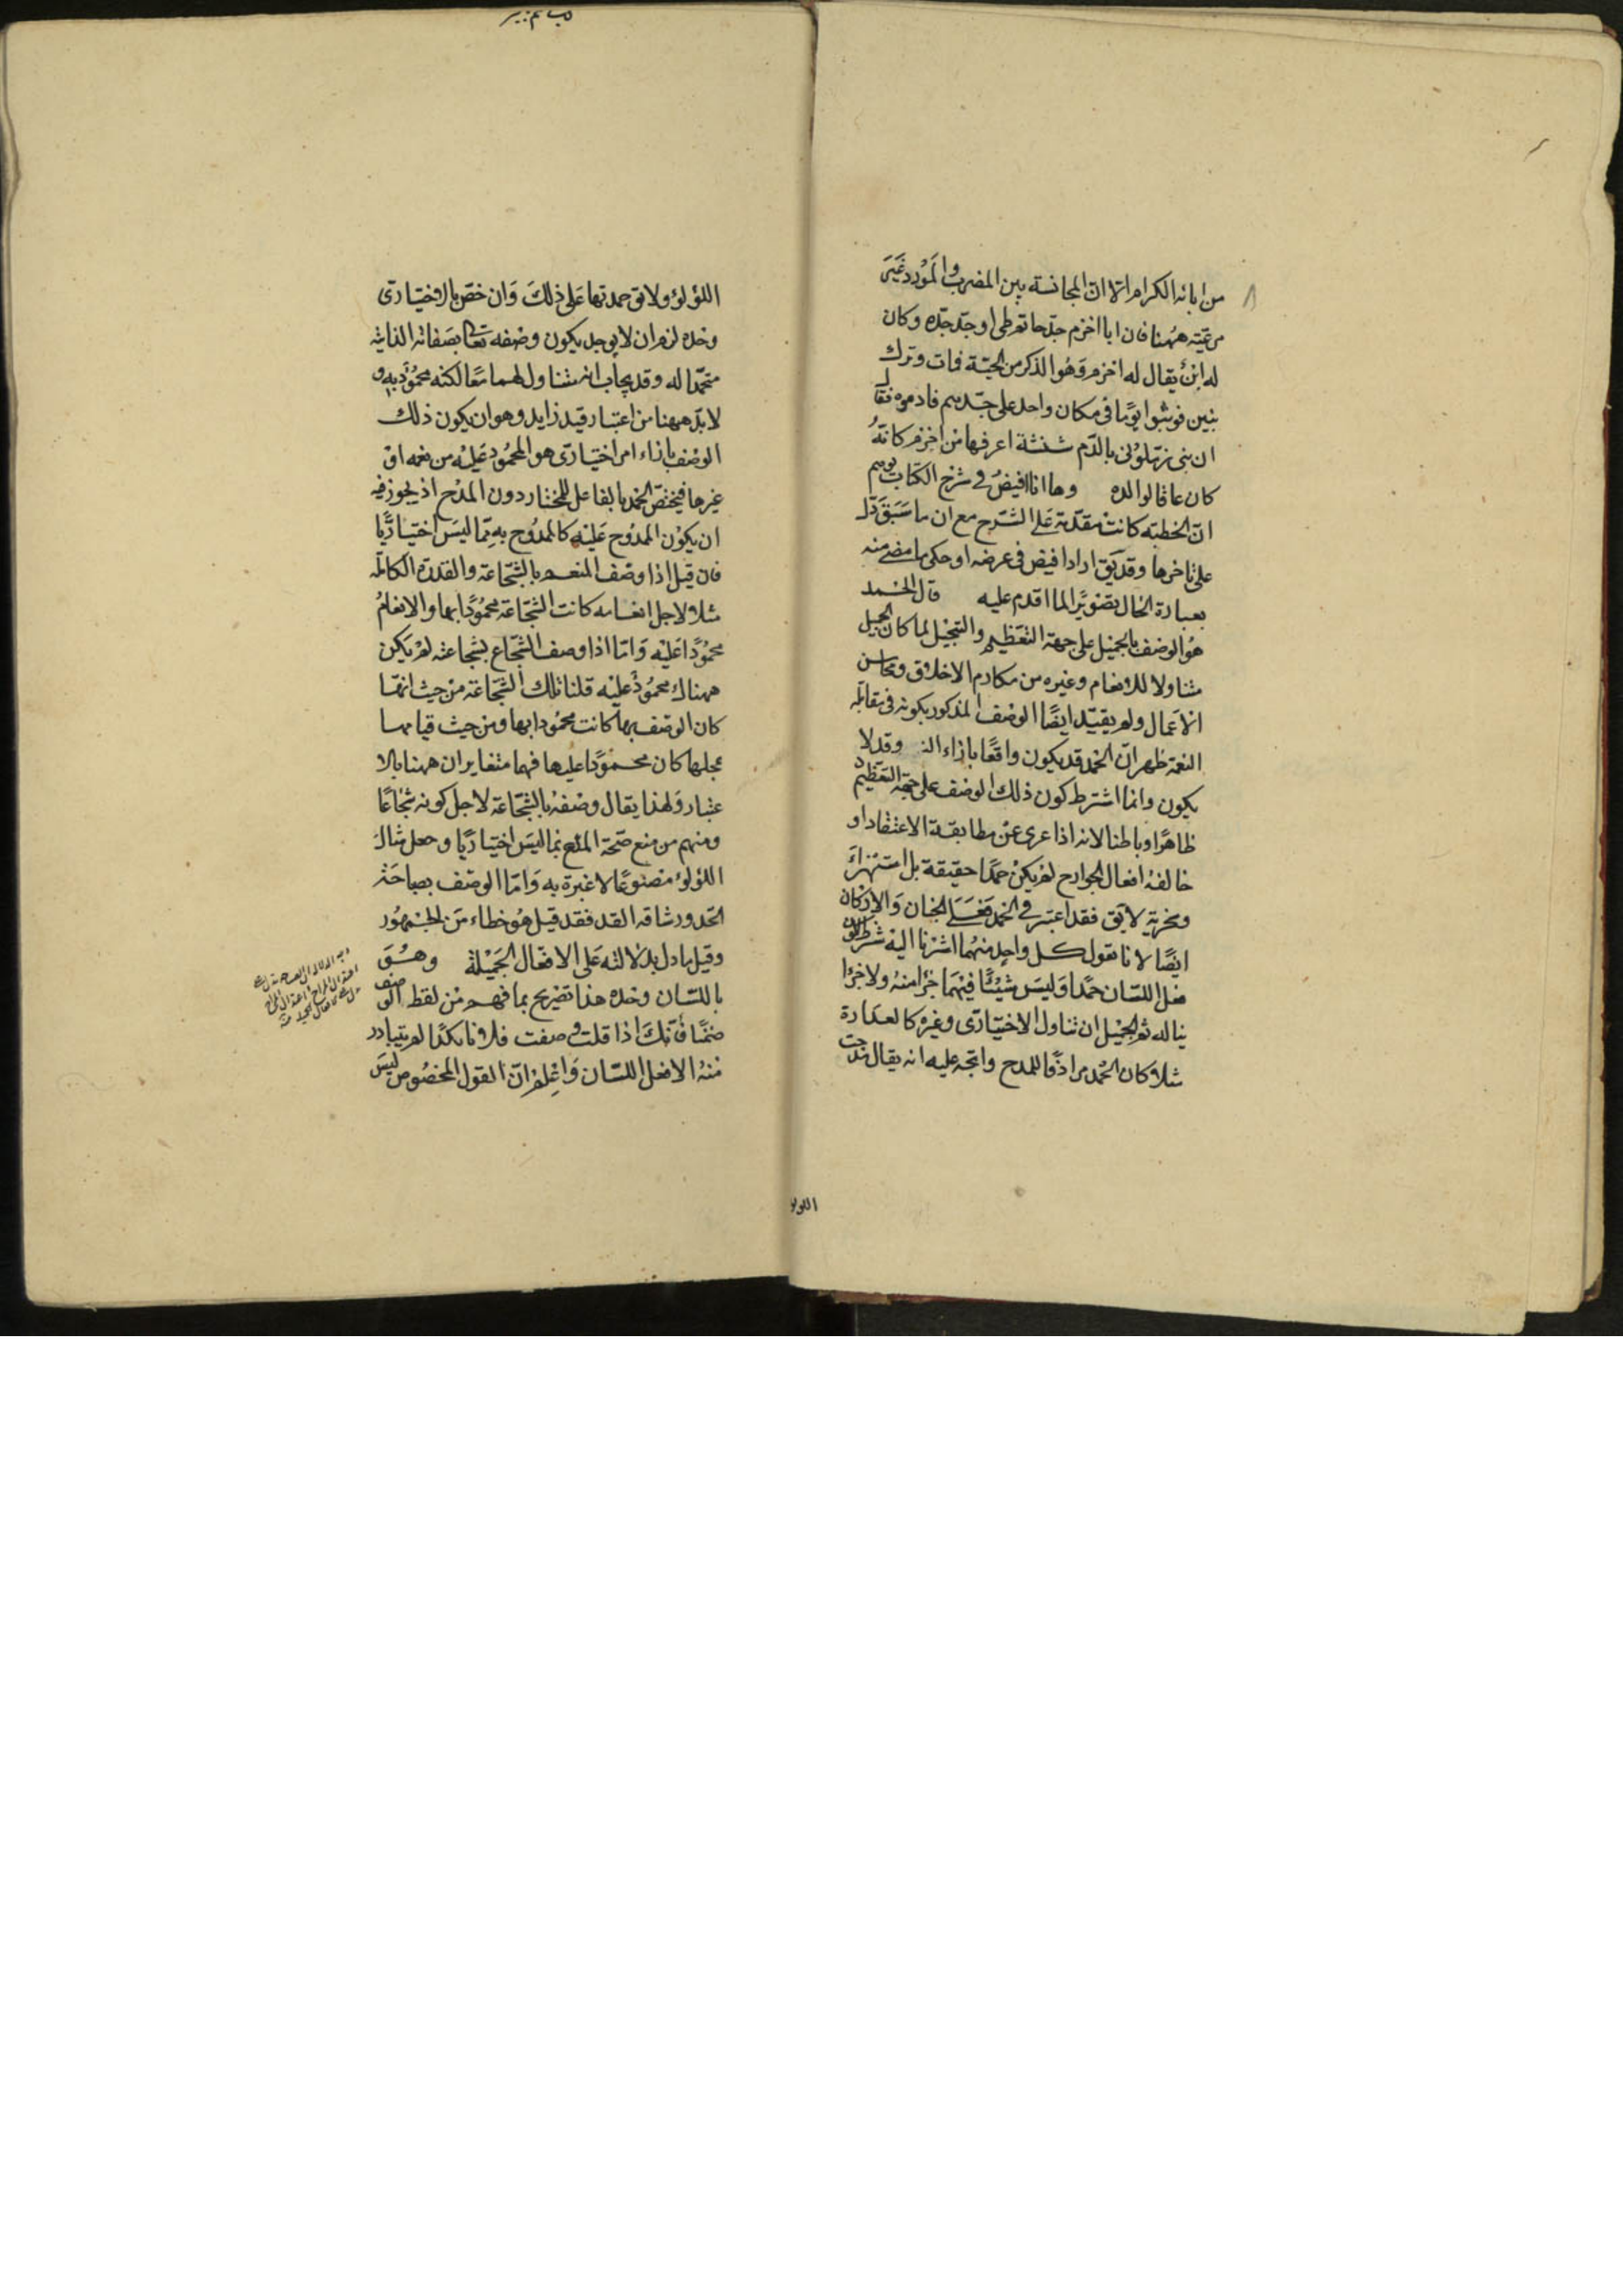 من ابائه الكرام الا ان المجانسة بين المضرب والمورد غير
مرعية ههنا فان ابا اخزم جد حاتم طى او جد جده وكان
له ابن يقال له اخزم وهو الذكر من الحية فمات وترك
بنين فوثبوا يوما فى مكان واحد على جدهم فادموه فقال
ان بنى زملونى بالدم شنشنة اعرفها من اخزم كانه
كان عاقا لوالده وها انا افيض فى شرح الكتاب يوهم
ان الخطبة كانت مقدمة على الشرح مع ان ما سبق دل
على تاخرها وقد يق اراد افيض فى عرضه او حكى ما مضى منه
بعبارة الحال تصويرا لما اقدم عليه قال الحمد
هو الوصف بالجميل على جهة التعظيم والتبجيل لما كان الجميل
متناولا للانعام وغيره من مكارم الاخلاق ومحاسن
الاعمال ولم يقيد ايضا الوصف المذكور بكونه فى مقابلة
النعمة ظهر ان الحمد قد يكون واقعا بازاء النـ وقد لا
يكون وانما اشترط كون ذلك الوصف على جهة التعظيم
ظاهرا وباطنا لانه اذا عرى عن مطابقة الاعتقاد او
خالفه افعال الجوارح لم يكن حمدا حقيقة بل استهزاء
وسخرية لا يق فقد اعتبر فى الحمد فعل الجنان والاركان
ايضا لانا نقول كل واحد منهما اشرنا اليه شرط لكون
فعل اللسان حمدا وليس شيئا فيهما جزا منه ولا جزئا
يناله ثم الجميل ان تناول الاختيارى وغيره كالعدارة
مثلا كان الحمد مرادفا للمدح واتجه عليه انه يقال مدحت
اللولو
اللؤلؤ ولا يق حمدتها على ذلك وان خص بالاختيارى
وحده لزم ان لا يوجد يكون وصفه تعا بصفاته الذاتية
حمدا له وقد يجاب انه متناول لهما معا لكنه محمود به و
لا بد ههنا من اعتبار قيد زايد وهو ان يكون ذلك
الوصف بازاء امر اختيارى هو المحمود عليه من نعمه او
غيرها فيختص الحمد بالفاعل المختار دون المدح اذ يجوز فيه
ان يكون الممدوح عليه كالممدوح به مما ليس اختياريا
فان قيل اذا وصف المنعم بالشجاعة والقدرة الكاملة
مثلا لاجل انعامه كانت الشجاعة محمودا بها والانعام
محمودا عليه واما اذا وصف الشجاع بشجاعته لم يكن
هناك محمود عليه قلنا تلك الشجاعة من حيث انها
كان الوصف بها كانت محمودا بها ومن حيث قيامها
بمحلها كان محمودا عليها فهما متغايران ههنا بالا
عتبار ولهذا يقال وصفه بالشجاعة لاجل كونه شجاعا
ومنهم من منع صحة المدح بما ليس اختياريا وجعل مثال
اللؤلؤ مصنوعا لا عبرة به واما الوصف بصباحة
الخد ورشاقة القد فقد قيل هو خطاء من الجمهور
وقيل مادل بدلالته على الافعال الجميلة وهو
باللسان وحده هذا تصريح بما فهم من لفظ الوصف
ضمنا فانك اذا قلت وصفت فلانا بكذا لم يتبادر
منه الا فعل اللسان واعلم ان القول المخصوص ليس